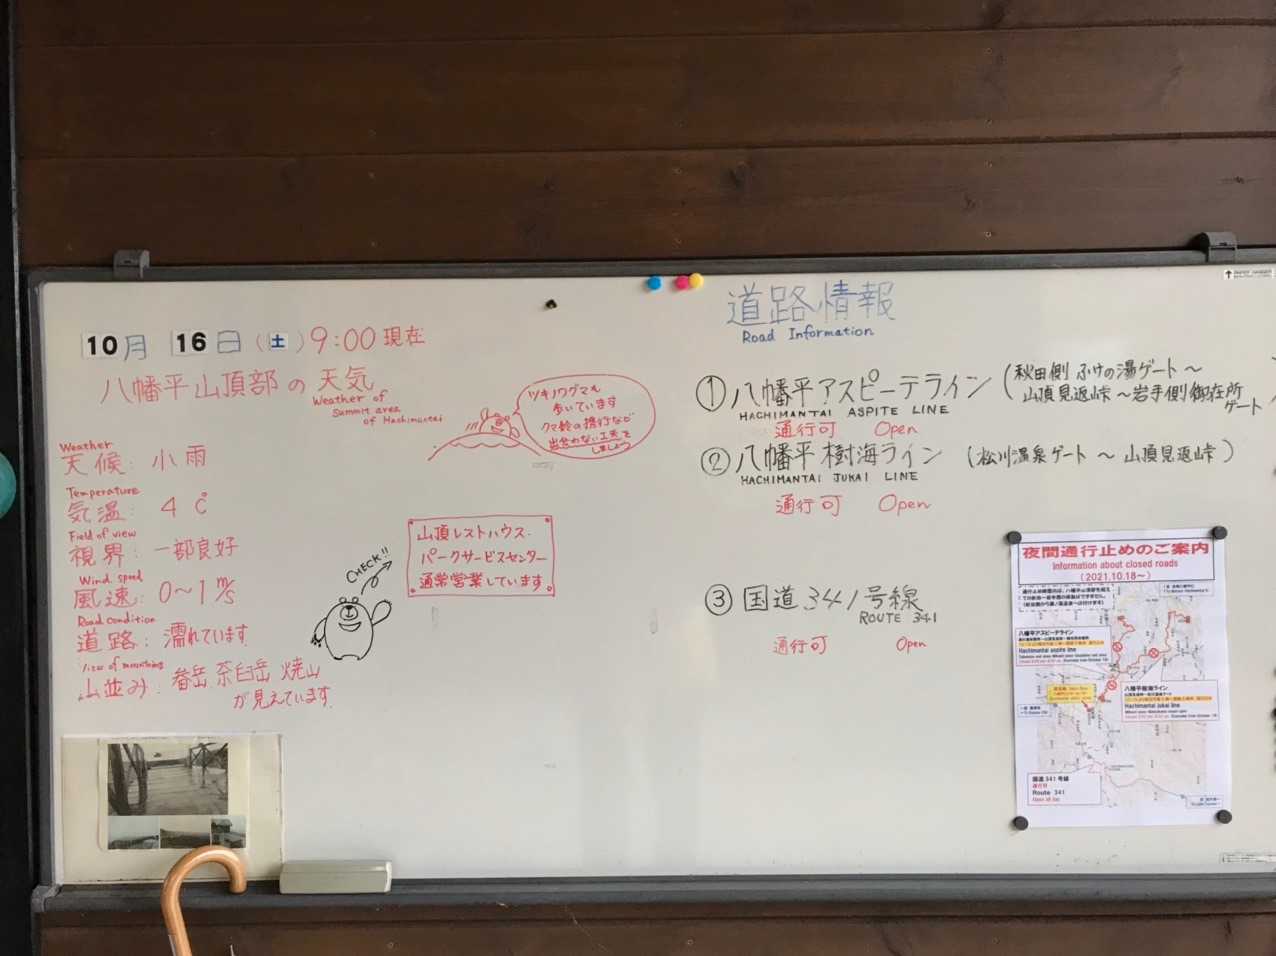 10月 16日(土) 9:00 現在
八幡平山頂部の天気
Weather of
Summit area
of Hachimantai
Weather
天候: 小雨
Temperature
気温: 4℃
Field of view
視界: 一部良好
Wind speed
風速: 0〜1 m/s
Road condition
道路: 濡れています
View of mountains
山並み: 畚岳 茶臼岳 焼山
が見えています
ツキノワグマも
歩いています
クマ鈴の携行など
出合わない工夫を
しましょう
山頂レストハウス・
パークサービスセンター
通常営業しています
CHECK!!
道路情報
Road Information
① 八幡平アスピーテライン (秋田側 ふけの湯ゲート〜
山頂見返峠〜岩手側御在所
ゲート)
HACHIMANTAI ASPITE LINE
通行可 Open
② 八幡平樹海ライン (松川温泉ゲート 〜 山頂見返峠)
HACHIMANTAI JUKAI LINE
通行可 Open
③ 国道341号線
ROUTE 341
通行可 Open
夜間通行止めのご案内
Information about closed roads
(2021.10.18〜)
八幡平アスピーテライン
Hachimantai aspite line
八幡平樹海ライン
Hachimantai jukai line
国道341号線
通行可
Route 341